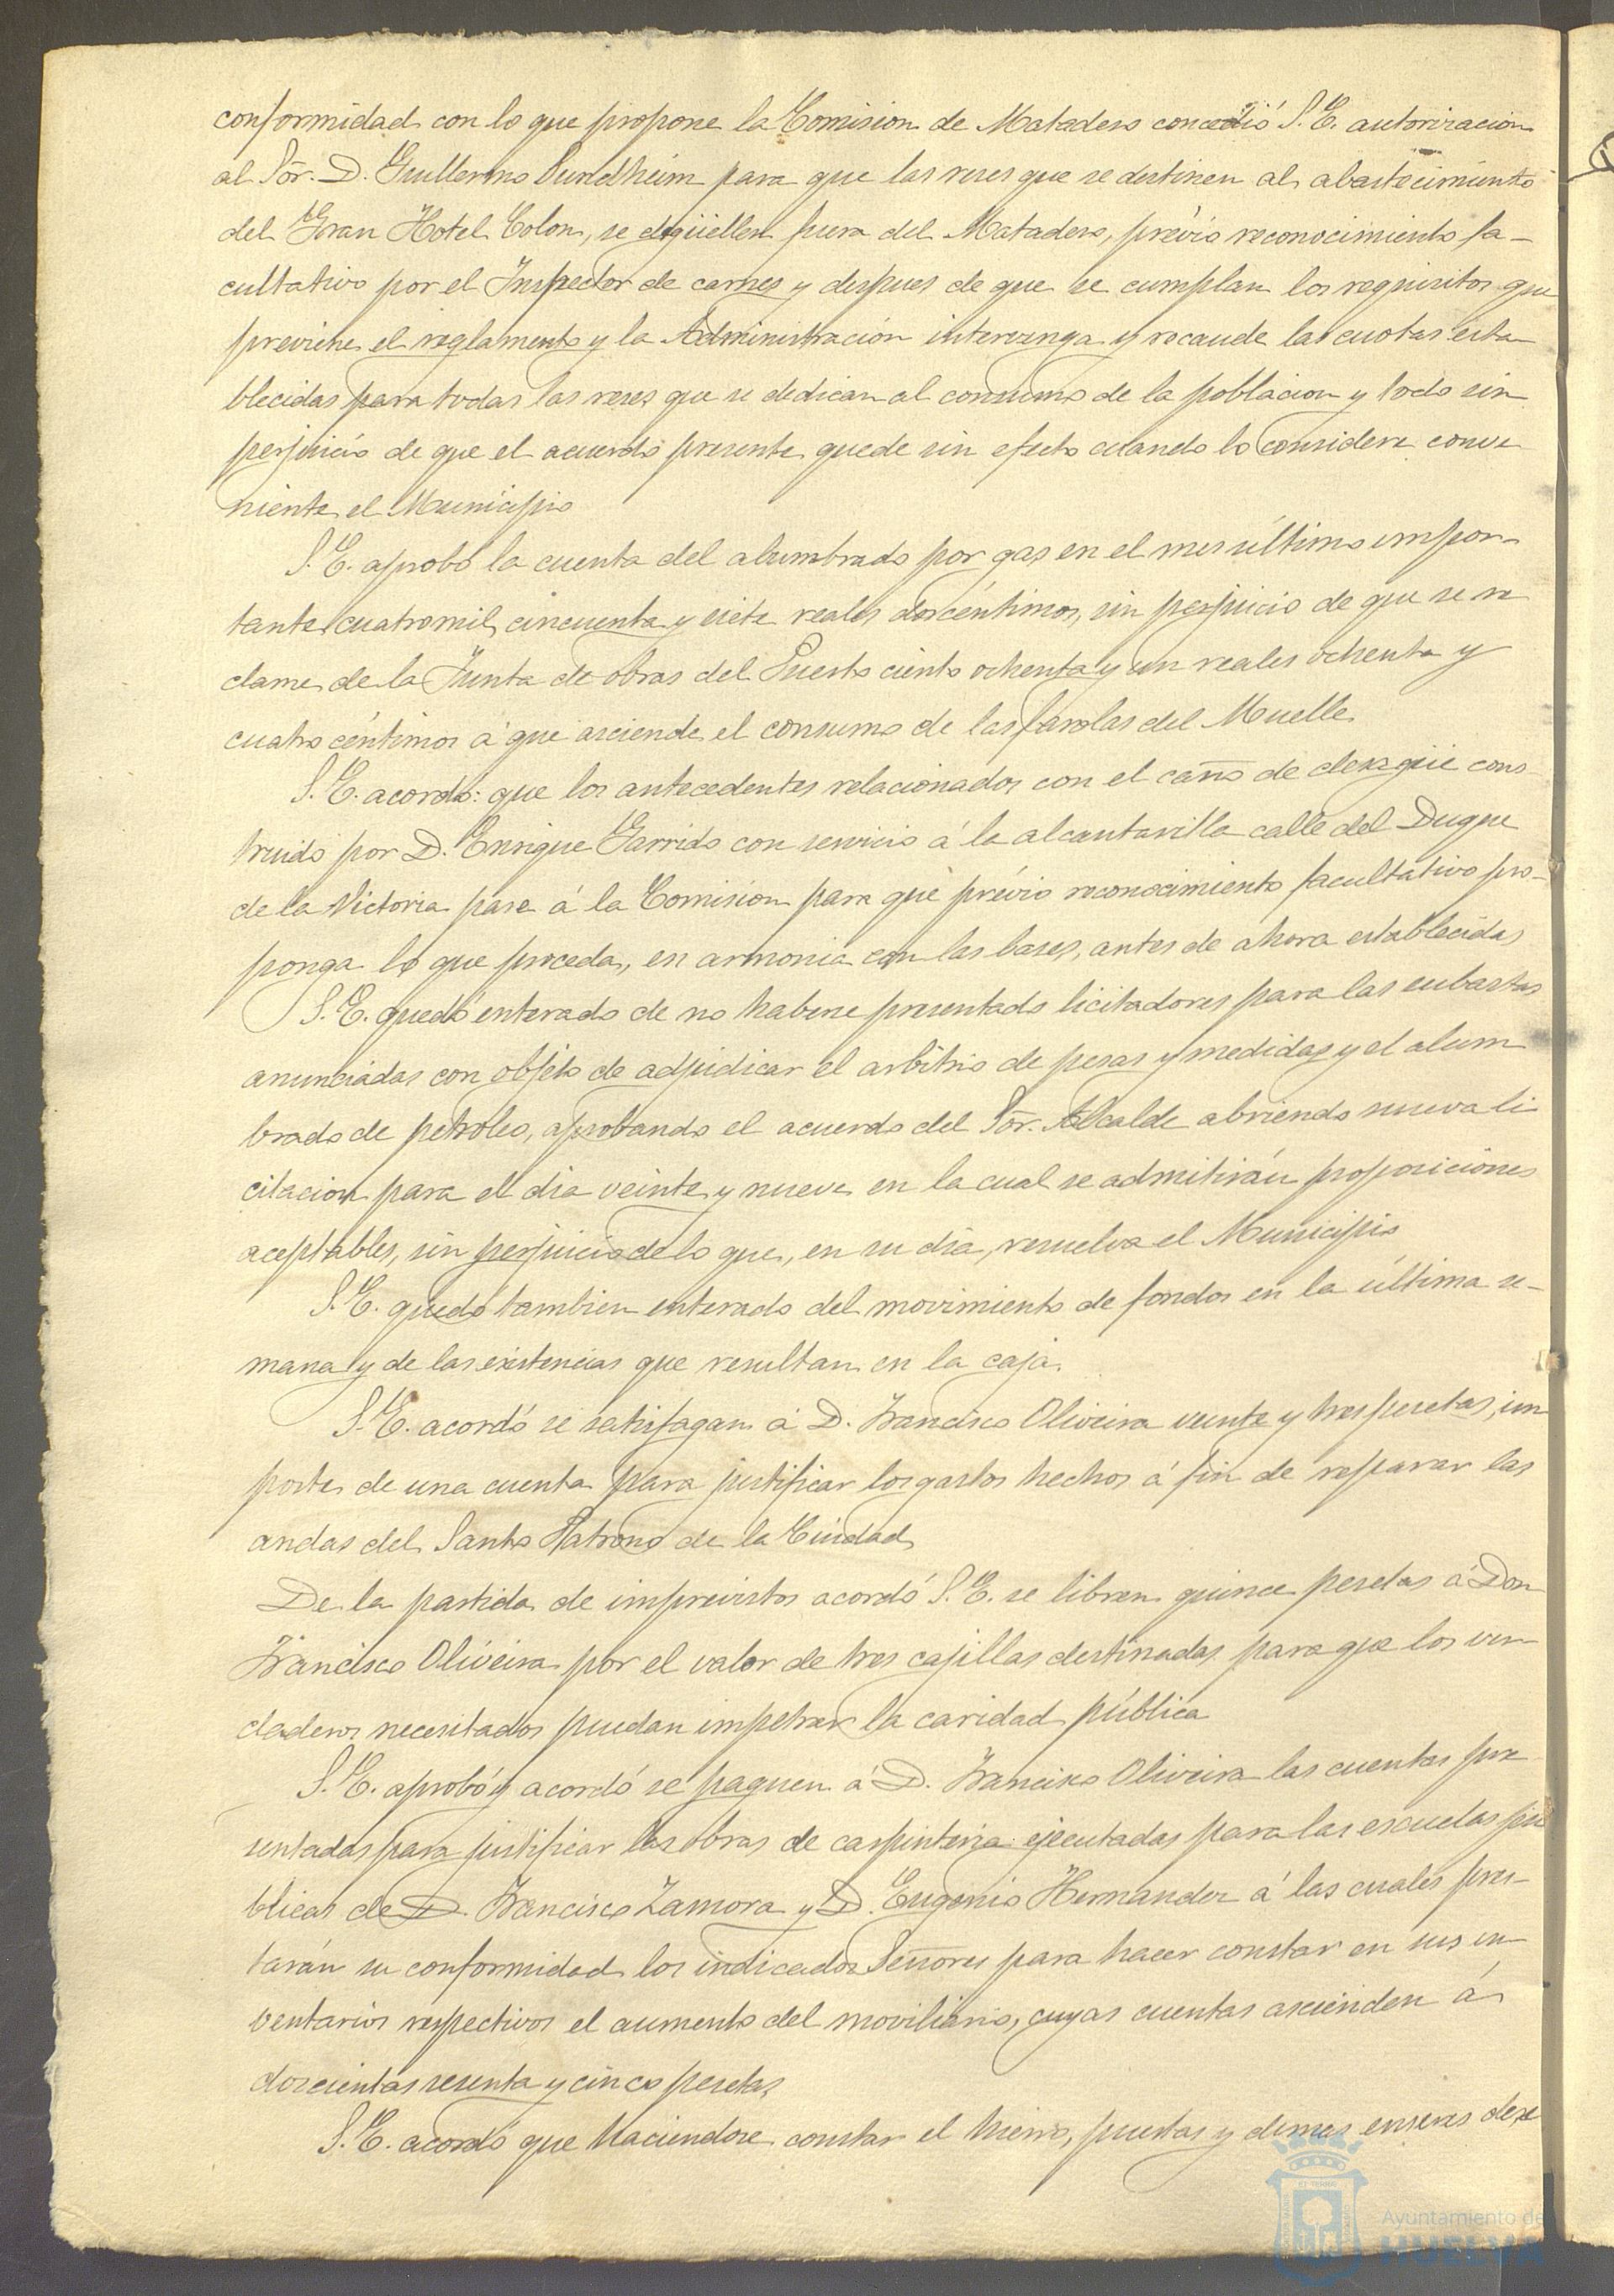 conformidad con lo que propone la Comision de Matadero concedió S. E. autorizacion
al Sör. D. Guillermo Sundheim para que las reses que se destinen al abastecimiento
del Gran Hotel Colon, se degüellen fuera del Matadero, prévio reconocimiento fa-
cultativo por el Inspector de carnes y despues de que se cumplan los requisitos que
previene el reglamento y la Administración intervenga y recaude las cuotas esta
blecidas para todas las reses que se dedican al consumo de la poblacion y todo sin
perjuicio de que el acuerdo presente quede sin efecto cuando lo considere conve
niente el Municipio
S. E. aprobó la cuenta del alumbrado por gas en el mes último impor-
tante cuatro mil cincuenta y siete reales dos céntimos, sin perjuicio de que se re
clame de la Junta de obras del Puerto ciento ochenta y un reales ochenta y
cuatro céntimos á que asciende el consumo de las farolas del Muelle
S. E. acordó: que los antecedentes relacionados con el caño de desagüe cons
truido por D. Enrique Garrido con servicio á la alcantarilla calle del Duque
de la Victoria pase á la Comision para que prévio reconocimiento facultativo pro-
ponga lo que proceda, en armonia con las bases, antes de ahora establecidas
S. E. quedó enterado de no haberse presentado licitadores para las subastas
anunciadas con objeto de adjudicar el arbitrio de pesas y medidas y el alum
brado de petroleo, aprobando el acuerdo del Sör. Alcalde abriendo nueva li
citacion para el dia veinte y nueve en la cual se admitirán proposiciones
aceptables, sin perjuicio de lo que, en su dia, resuelva el Municipio
S. E. quedó tambien enterado del movimiento de fondos en la última se-
mana y de las existencias que resultan en la caja.
S. E. acordó se satisfagan á D. Francisco Oliveira veinte y tres pesetas, im
porte de una cuenta para justificar los gastos hechos á fin de reparar las
andas del Santo Patrono de la Ciudad
De la partida de imprevistos acordó S. E. se libren quince pesetas á Don
Francisco Oliveira por el valor de tres cajillas destinadas para que los ver
daderos necesitados puedan impetrar la caridad pública
S. E. aprobó y acordó se paguen á D. Francisco Oliveira las cuentas pre
sentadas para justificar las obras de carpinteria ejecutadas para las escuelas pú
blicas de D. Francisco Zamora y D. Eugenio Hernandez á las cuales pres-
tarán su conformidad los indicados Señores para hacer constar en sus in
ventarios respectivos el aumento del moviliario, cuyas cuentas ascienden á
doscientas sesenta y cinco pesetas
S. E. acordó que haciendose constar el hierro, puertas y demas enseres dese
Ayuntamiento de
HUELVA